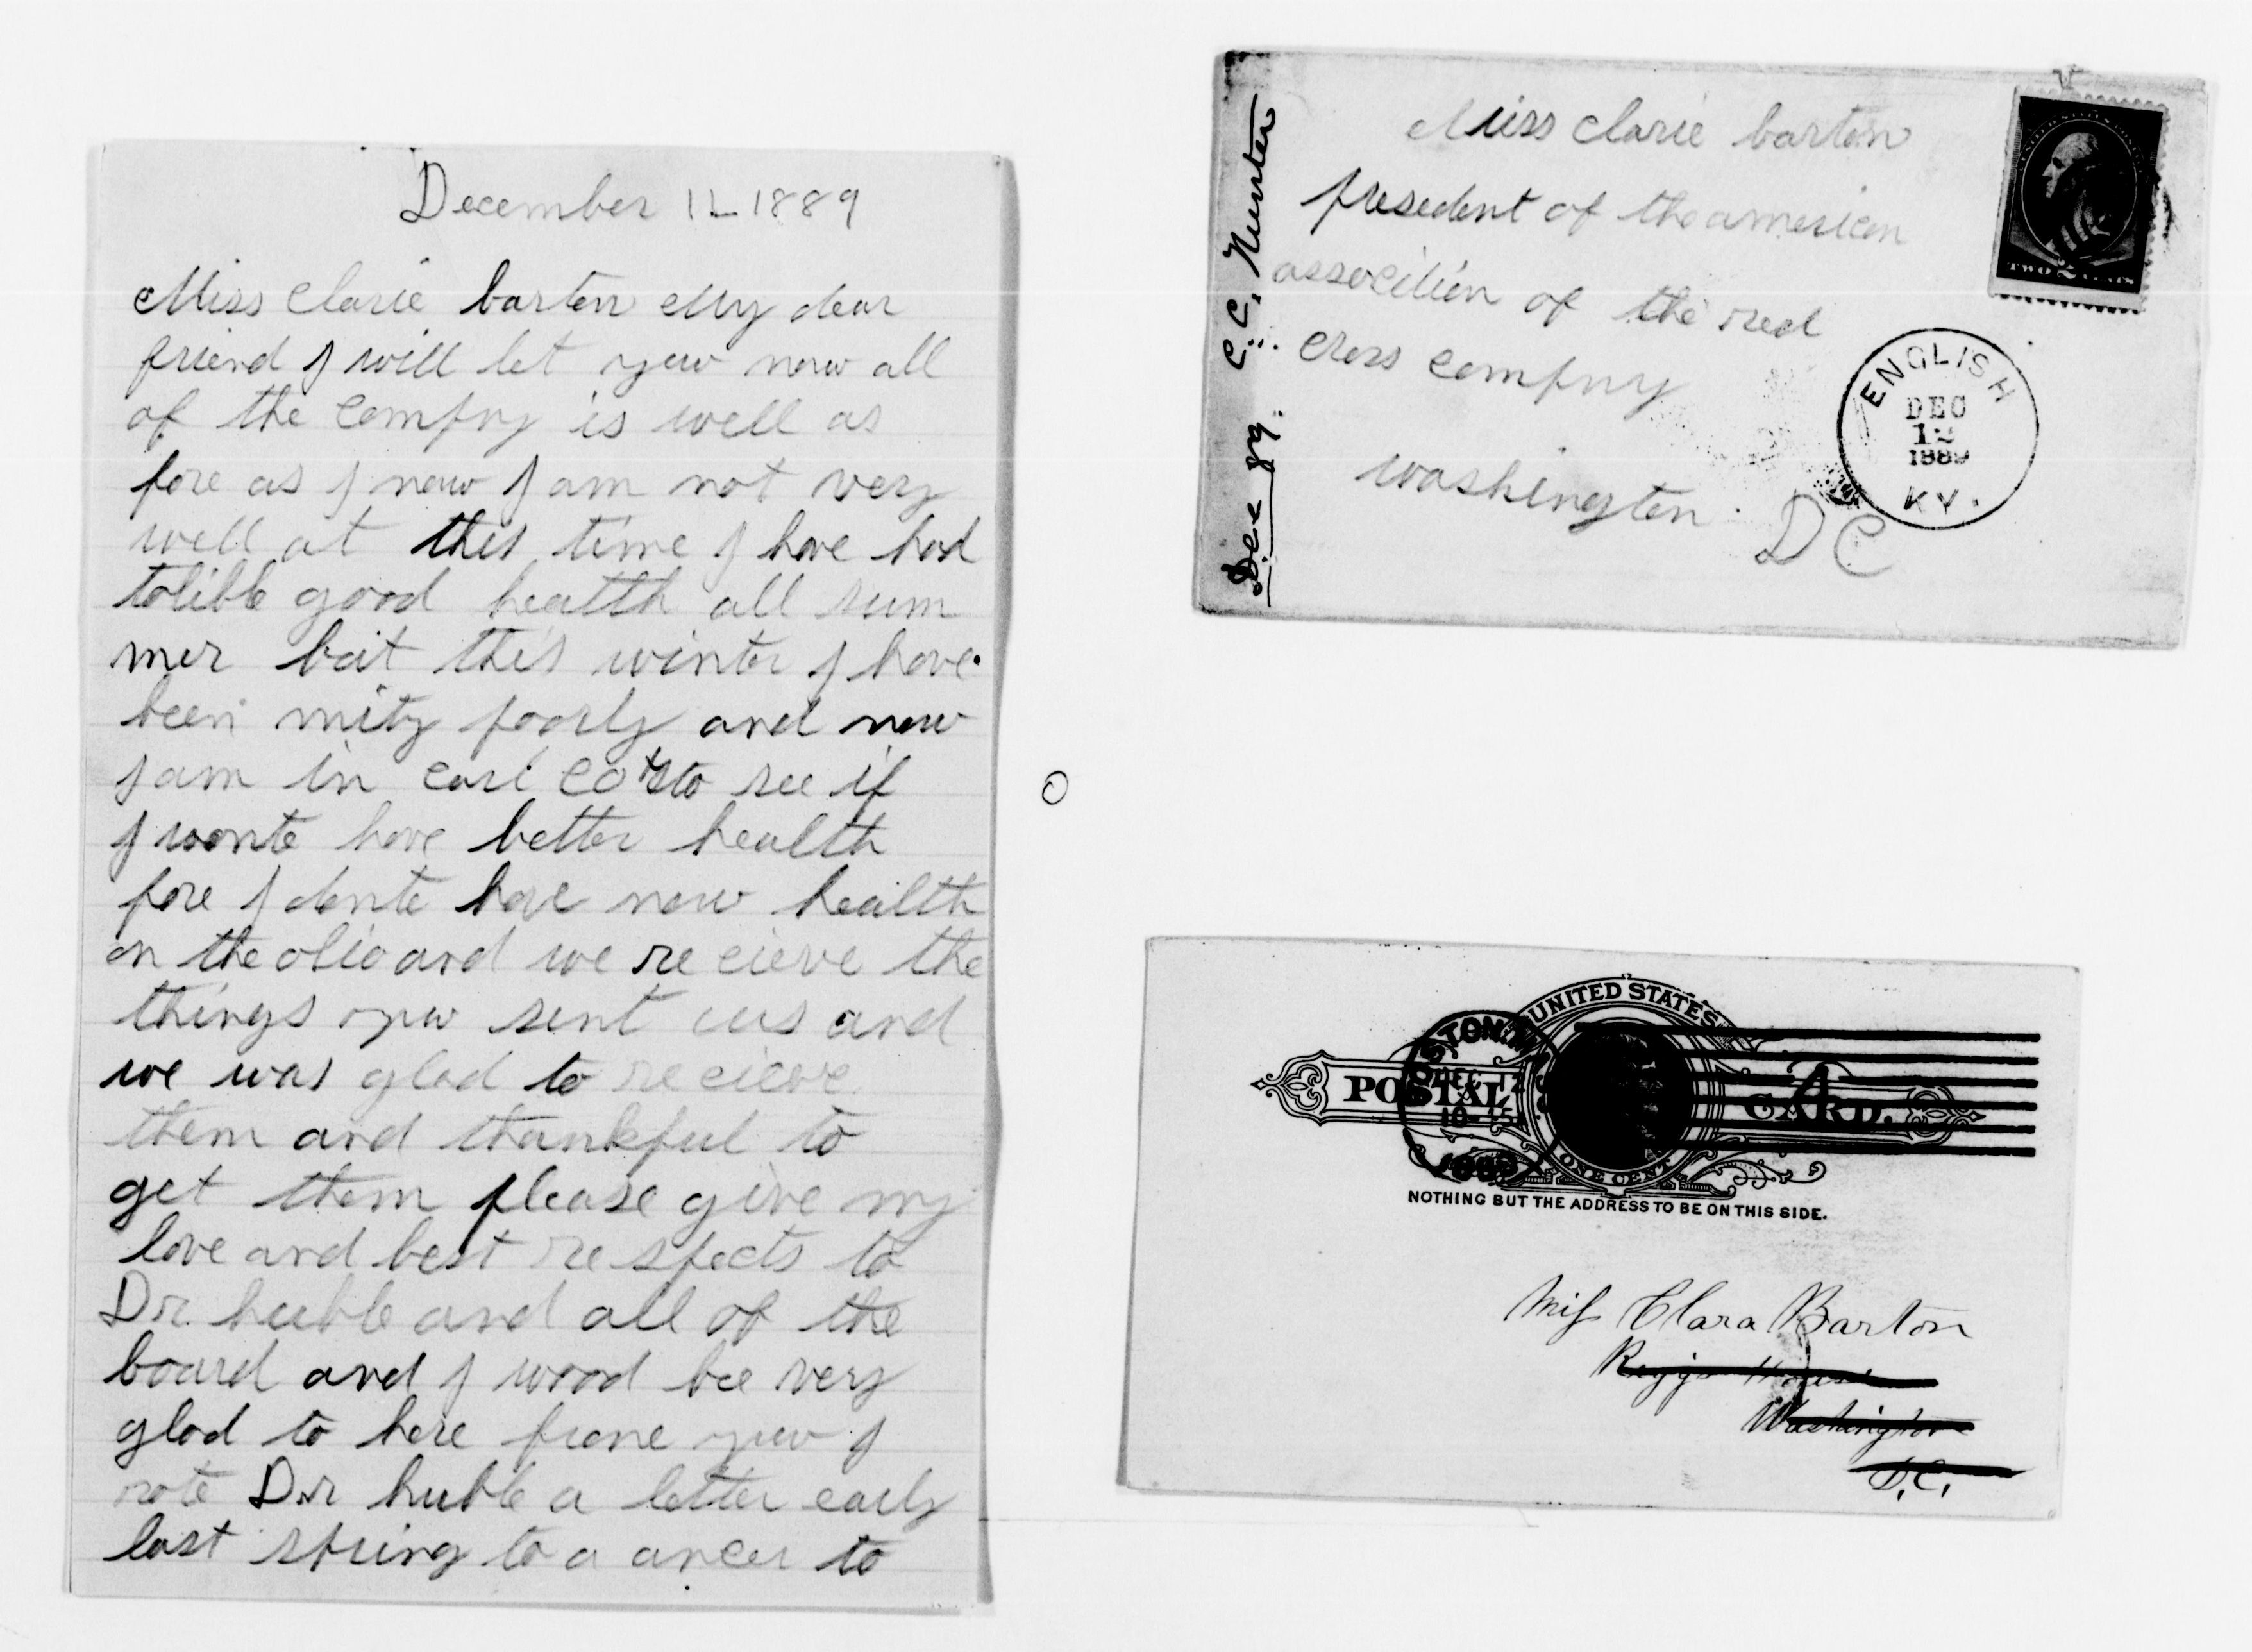 December 11 1889
Miss Clarie barton My dear
friend I will let yuw now all
of the compny is well as
fore as I now I am not very
well at this time I have had
tolible good health all sum
mer bait this winter I have
been mity poorly and now
I am in carl co to see if
I wonte have better health
fore I donte have now health
on the ohio and we re cieve the
things yuw sent uus and
we was glad to recieve
them and thankful to
get them please give my
love and best re spects to
Dr. huble and all of the
board and I wood bee very
glad to here frome yuw I
rote Dr huble a letter early
last spring to a ancer to
Miss Clarie barton
presedent of the american
associtien of the red
cross compny
washington DC
Dec 89. C. C. Hunter
TWO 2 CENTS
ENGLISH
DEC
12
1889
KY.
UNITED STATES
POSTAL CARD.
ONE CENT
DEC 12
10-15A
1889
NOTHING BUT THE ADDRESS TO BE ON THIS SIDE.
Miss Clara Barton
Riggs House
Washington
D.C.